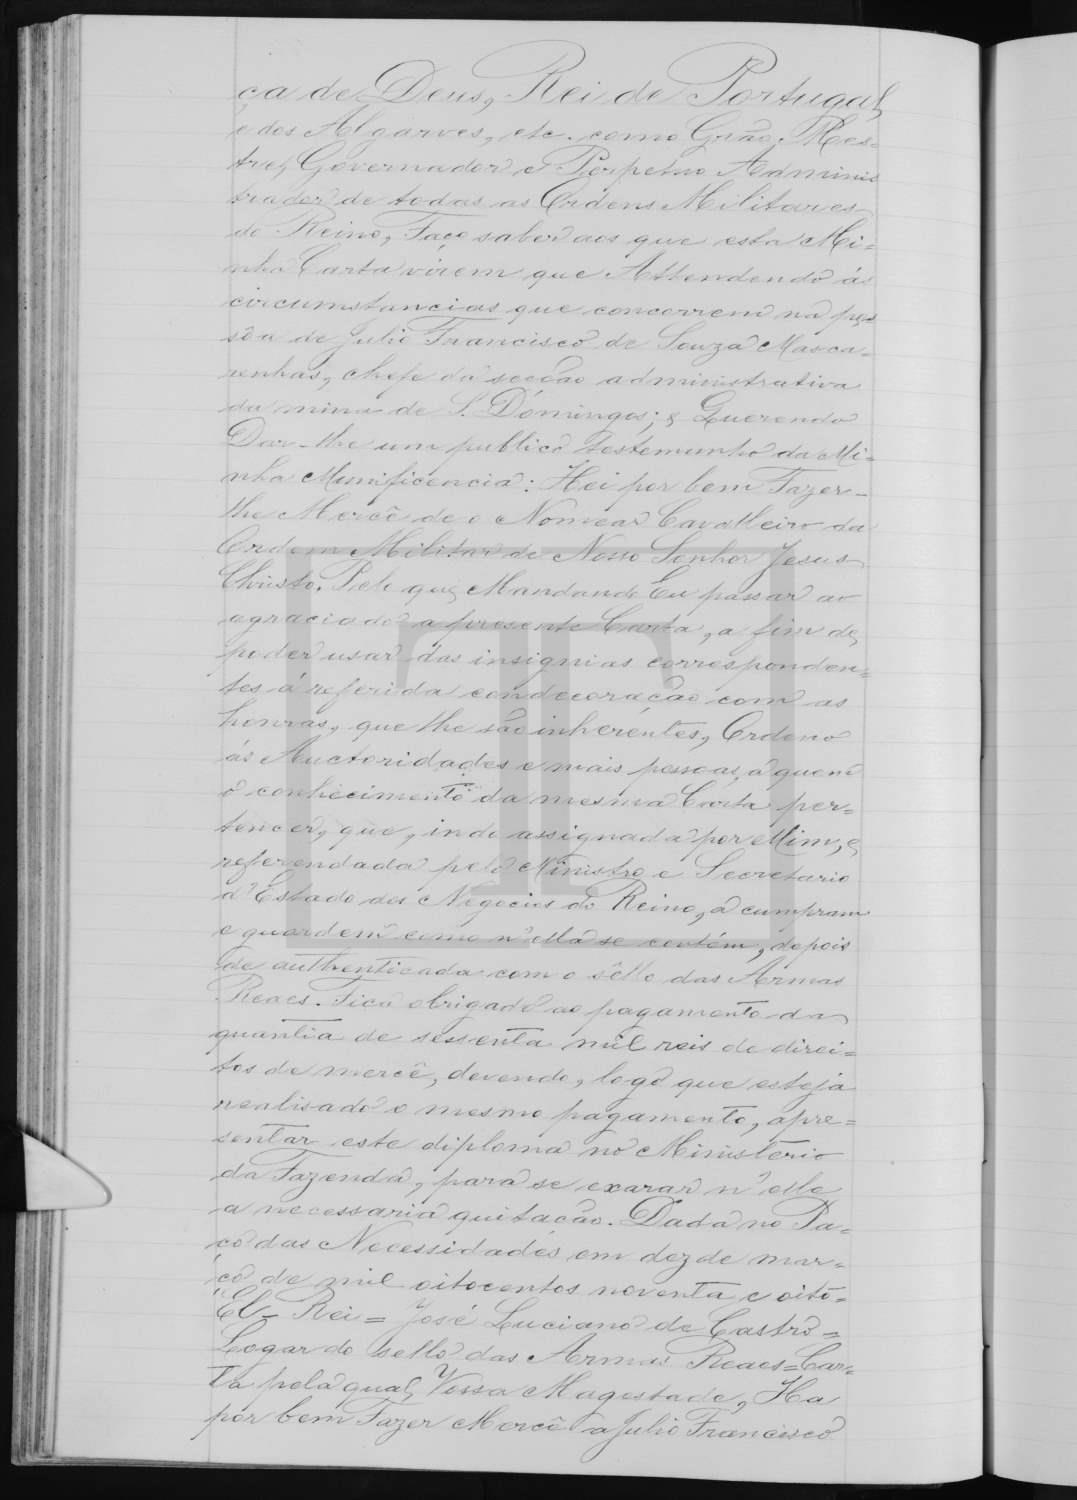 ça de Deus, Rei de Portugal,
e dos Algarves, etc. como Grão: Mes=
tre, Governador e Perpetuo Adminis
trador de todas as Ordens Militares
do Reino, Faço saber aos que esta Mi=
nha Carta virem que Attendendo ás
circumstancias que concorrem na pes
sôa de Julio Francisco de Souza Masca=
renhas, chefe da secção administrativa
da mina de S. Domingos; e Querendo
Dar-lhe um publico testemunho da Mi=
nha Munificencia: Hei por bem Fazer-
lhe Mercê de o Nomear Cavalleiro da
Ordem Militar de Nosso Senhor Jesus
Christo. Pelo que, Mandando Eu passar ao
agraciado a presente Carta, a fim de,
poder usar das insignias corresponden=
tes á referida condecoração com as
honras, que lhe são inherentes, Ordeno
ás Auctoridades e mais pessoas, a quem
o conhecimento da mesma Carta per=
tencer, que, indo assignada por Mim, e,
referendada pelo Ministro e Secretario
d'Estado dos Negocios do Reino, a cumpram
e guardem como n'ella se contém, depois
de authenticada com o sêllo das Armas
Reaes. Fica obrigado ao pagamento da
quantia de sessenta mil reis de direi=
tos de mercê, devendo, logo que esteja
realisado o mesmo pagamento, apre=
sentar este diploma no Ministerio
da Fazenda, para se exarar n'elle
a necessaria quitação. Dada no Pa=
ço das Necessidades em dez de mar=
ço de mil oitocentos noventa e oito=
El-Rei= José Luciano de Castro=
Logar do sello das Armas Reaes=Car=
ta pela qual, Vossa Magestade, Ha
por bem Fazer Mercê a Julio Francisco